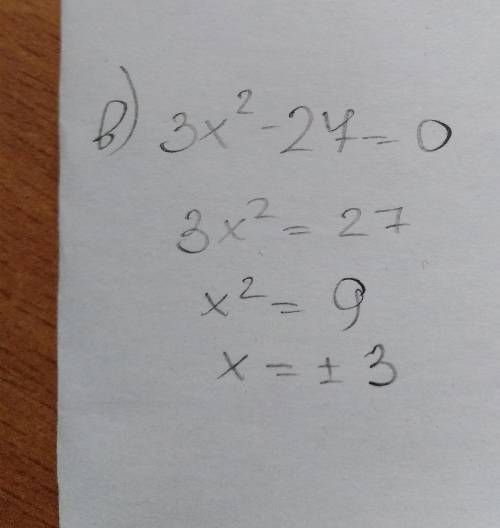 в) 3x² - 27 = 0
3x² = 27
x² = 9
x = ± 3